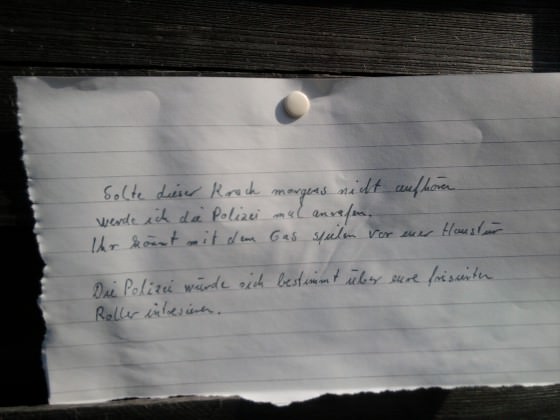 Solte dieser Krach morgens nicht aufhören
werde ich die Polizei mal anrufen.
Ihr könnt mit dem Gas spielen vor euer Haustür
Die Polizei würde sich bestimmt über eure frisierten
Roller intresieren.